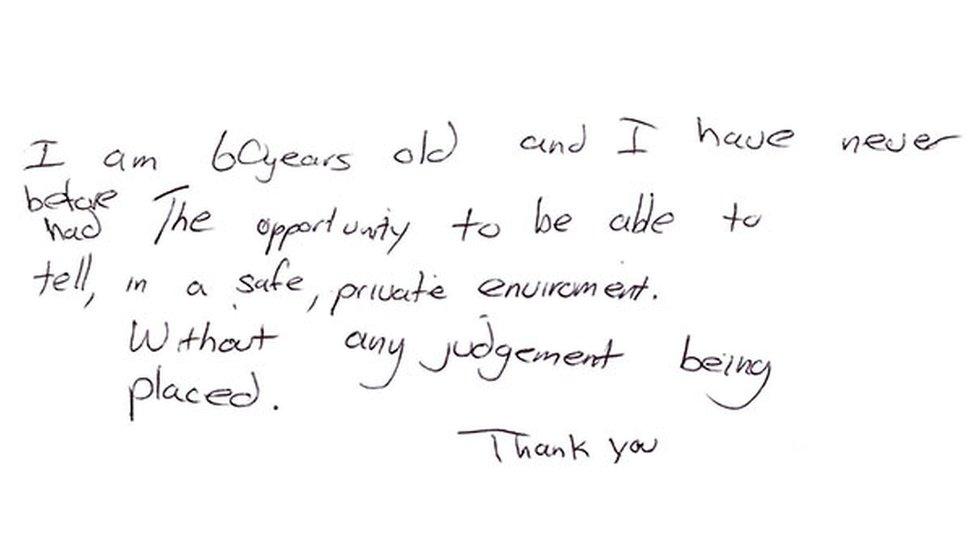 I am 60years old and I have never
before
had The opportunity to be able to
tell, in a safe, private enviroment.
Without any judgement being
placed.
Thank you